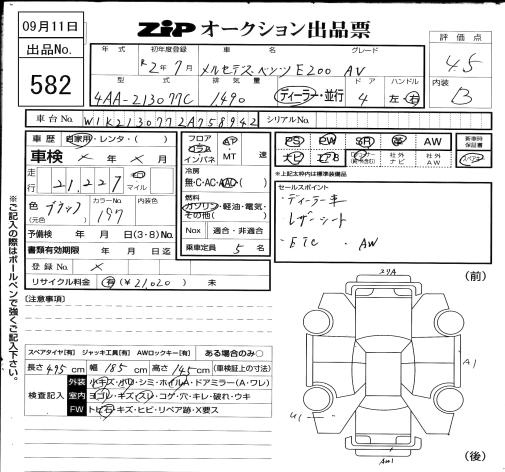 09月11日
ZIP オークション出品票
出品No.
582
年式 初年度登録 車名 グレード
R2年7月 メルセデスベンツ E200 AV
評価点
4.5
型式 排気量 ドア ハンドル
4AA-213077C 1490 ディーラー・並行 4 左・右
内装
B
車台No. W1K2130772A758942 シリアルNo.
車歴 自家用・レンタ・( )
車検 × 年 × 月
走行 21,227 キロ マイル
色(元色) ブラック カラーNo. 197 内装色
予備検 年 月 日(3・8)ナンバー
書類有効期限 年 月 日迄
登録No. ×
リサイクル料金 有(¥21,020) 未
フロア コラム インパネ AT MT 速
冷房 無・C・AC・AAC・( )
燃料 ガソリン・軽油・電気・その他( )
Nox 適合・非適合
乗車定員 5 名
PS PW SR 革 AW
ナビ エアB 社外ナビ 社外AW
新車時保証書
※上記太枠内は標準装備品
セールスポイント
・ディーラー車
・レザーシート
・ETC ・AW
[注意事項]
スペアタイヤ[有] ジャッキ工具[有] AWロックキー[有] ある場合のみ○
長さ495cm 幅185cm 高さ145cm (車検証上の寸法)
検査記入
外装 小キズ・小凹・シミ・ホイルA・ドアミラー(A・ワレ)
室内 ヨゴレ・キズ・スレ・コゲ・穴・キレ・破れ・ウキ
FW トビ石・キズ・ヒビ・リペア跡・X要ス
※ご記入の際はボールペンで強くご記入下さい。
(前)
A1
U1
AW1
(後)